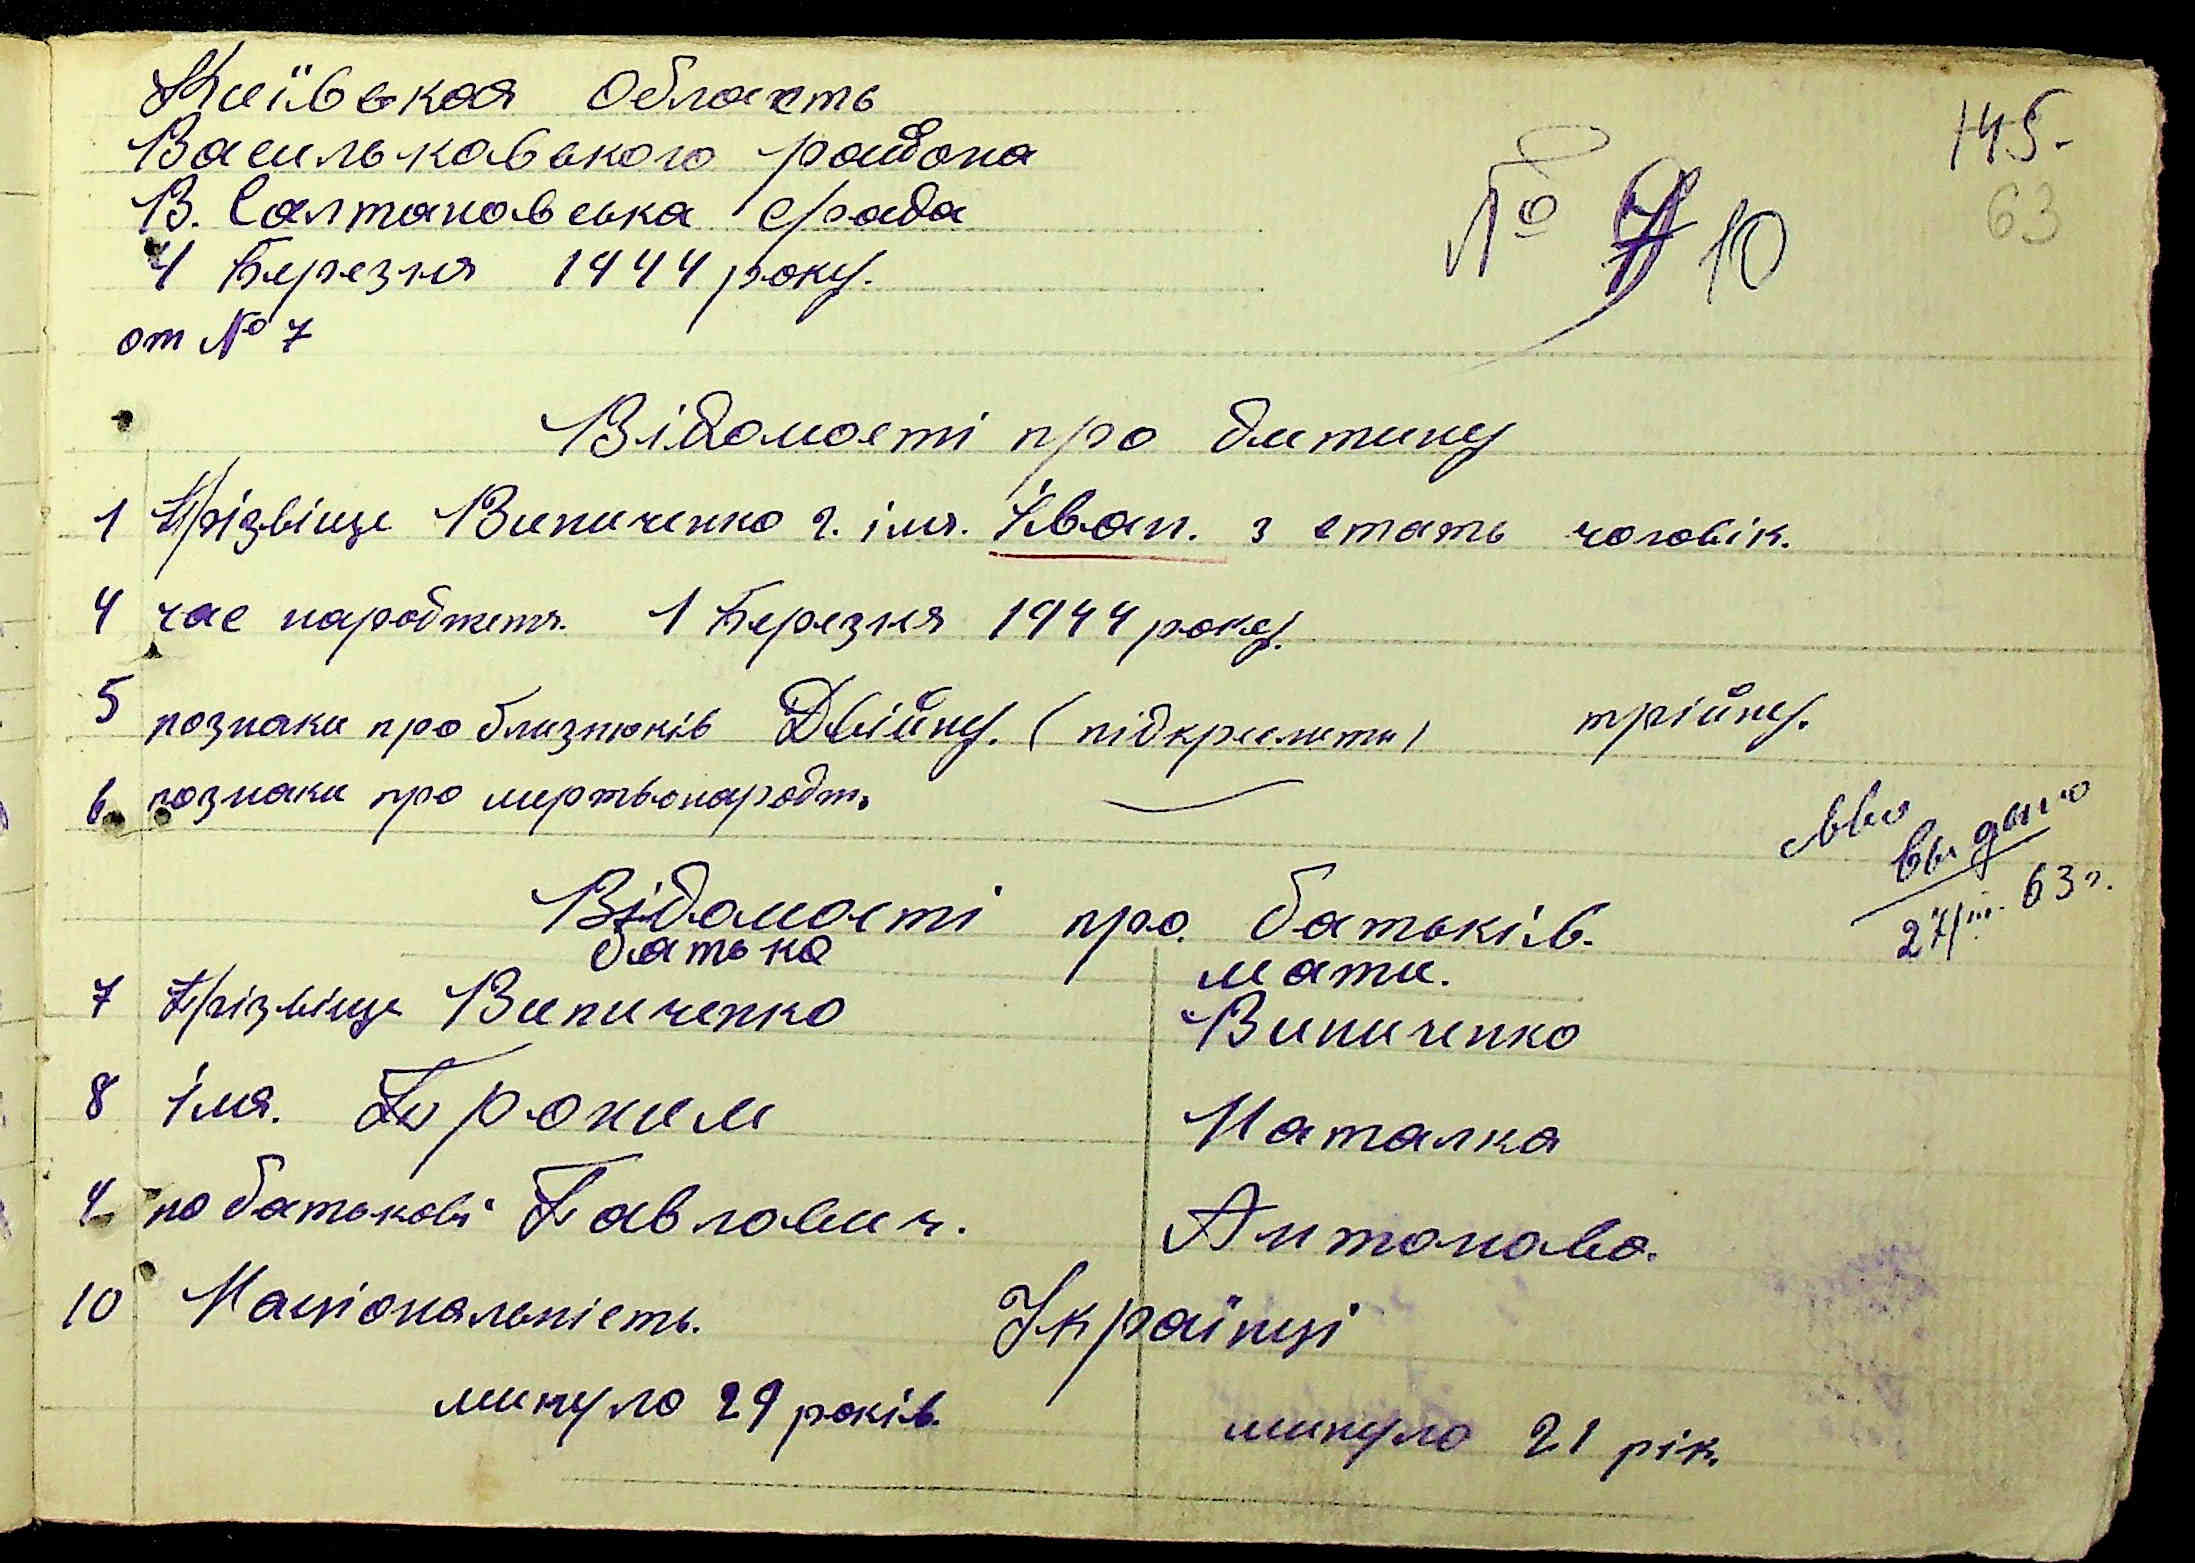 Київская Область
145-
Васильковського района
63
В. Салтановська с/рада
№ 10
4 Березня 1944 року.
от № 7
Відомості про дитину
1 Прізвіще Винниченко 2. імя. Іван. 3 стать чоловік.
4 час народженя. 1 Березня 1944 року.
5 познаки про близнюків Двійну. (підкреслити) трійну.
6. познаки про мертвонародж.
выдано
27/III. 63 г.
Відомості про батьків.
батько мати.
7 Прізвіще Виниченко Виниченко
8 імя. Прохим Наталка
9 по батькові Павлович. Антонова.
10 Національність. Українці
минуло 29 років. минуло 21 рік.